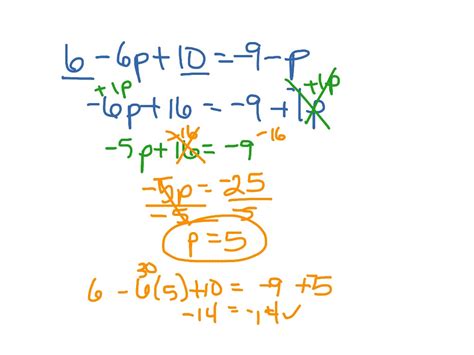 6 - 6p + 10 = -9 - p
+1p +1p
-6p + 16 = -9 + -1p
-16 -16
-5p + 16 = -9
-5p = -25
-5 -5
p = 5
30
6 - 6(5) + 10 = -9 + -5
-14 = -14 ✓